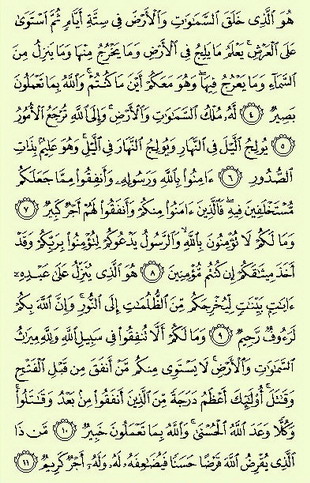 هُوَ ٱلَّذِى خَلَقَ ٱلسَّمَٰوَٰتِ وَٱلْأَرْضَ فِى سِتَّةِ أَيَّامٍ ثُمَّ ٱسْتَوَىٰ
عَلَى ٱلْعَرْشِ ۚ يَعْلَمُ مَا يَلِجُ فِى ٱلْأَرْضِ وَمَا يَخْرُجُ مِنْهَا وَمَا يَنزِلُ مِنَ
ٱلسَّمَآءِ وَمَا يَعْرُجُ فِيهَا ۖ وَهُوَ مَعَكُمْ أَيْنَ مَا كُنتُمْ ۚ وَٱللَّهُ بِمَا تَعْمَلُونَ
بَصِيرٌ ﴿٤﴾ لَّهُۥ مُلْكُ ٱلسَّمَٰوَٰتِ وَٱلْأَرْضِ ۚ وَإِلَى ٱللَّهِ تُرْجَعُ ٱلْأُمُورُ
﴿٥﴾ يُولِجُ ٱلَّيْلَ فِى ٱلنَّهَارِ وَيُولِجُ ٱلنَّهَارَ فِى ٱلَّيْلِ ۚ وَهُوَ عَلِيمٌۢ بِذَاتِ
ٱلصُّدُورِ ﴿٦﴾ ءَامِنُوا۟ بِٱللَّهِ وَرَسُولِهِۦ وَأَنفِقُوا۟ مِمَّا جَعَلَكُم
مُّسْتَخْلَفِينَ فِيهِ ۖ فَٱلَّذِينَ ءَامَنُوا۟ مِنكُمْ وَأَنفَقُوا۟ لَهُمْ أَجْرٌ كَبِيرٌ ﴿٧﴾
وَمَا لَكُمْ لَا تُؤْمِنُونَ بِٱللَّهِ ۙ وَٱلرَّسُولُ يَدْعُوكُمْ لِتُؤْمِنُوا۟ بِرَبِّكُمْ وَقَدْ
أَخَذَ مِيثَٰقَكُمْ إِن كُنتُم مُّؤْمِنِينَ ﴿٨﴾ هُوَ ٱلَّذِى يُنَزِّلُ عَلَىٰ عَبْدِهِۦٓ
ءَايَٰتٍۭ بَيِّنَٰتٍ لِّيُخْرِجَكُم مِّنَ ٱلظُّلُمَٰتِ إِلَى ٱلنُّورِ ۚ وَإِنَّ ٱللَّهَ بِكُمْ
لَرَءُوفٌ رَّحِيمٌ ﴿٩﴾ وَمَا لَكُمْ أَلَّا تُنفِقُوا۟ فِى سَبِيلِ ٱللَّهِ وَلِلَّهِ مِيرَٰثُ
ٱلسَّمَٰوَٰتِ وَٱلْأَرْضِ ۚ لَا يَسْتَوِى مِنكُم مَّنْ أَنفَقَ مِن قَبْلِ ٱلْفَتْحِ
وَقَٰتَلَ ۚ أُو۟لَٰٓئِكَ أَعْظَمُ دَرَجَةً مِّنَ ٱلَّذِينَ أَنفَقُوا۟ مِنۢ بَعْدُ وَقَٰتَلُوا۟ ۚ
وَكُلًّا وَعَدَ ٱللَّهُ ٱلْحُسْنَىٰ ۚ وَٱللَّهُ بِمَا تَعْمَلُونَ خَبِيرٌ ﴿١٠﴾ مَّن ذَا
ٱلَّذِى يُقْرِضُ ٱللَّهَ قَرْضًا حَسَنًا فَيُضَٰعِفَهُۥ لَهُۥ وَلَهُۥٓ أَجْرٌ كَرِيمٌ ﴿١١﴾